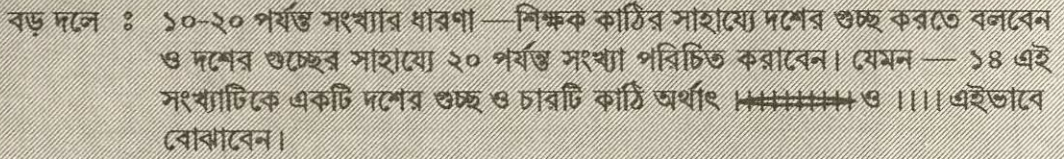 বড় দলে : ১০-২০ পর্যন্ত সংখ্যার ধারণা —শিক্ষক কাঠির সাহায্যে দশের গুচ্ছ করতে বলবেন
ও দশের গুচ্ছের সাহায্যে ২০ পর্যন্ত সংখ্যা পরিচিত করাবেন। যেমন — ১৪ এই
সংখ্যাটিকে একটি দশের গুচ্ছ ও চারটি কাঠি অর্থাৎ ও ।।।। এইভাবে
বোঝাবেন।